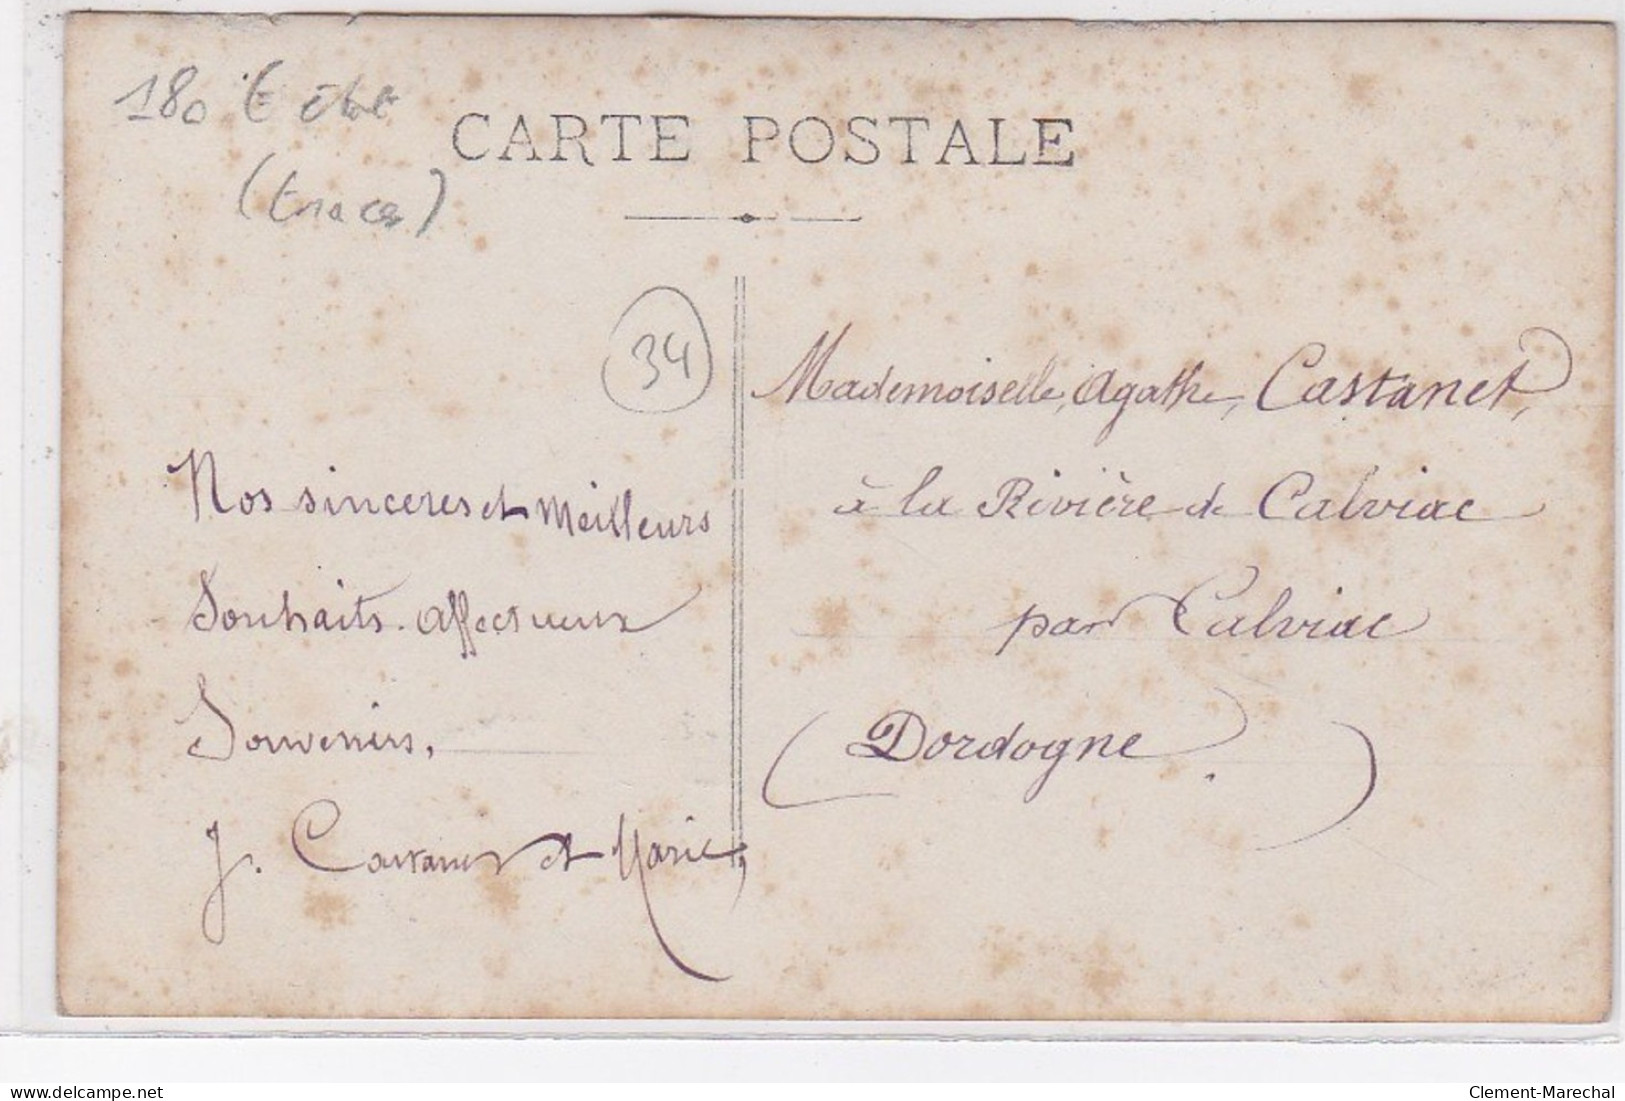 180 € état
(traces)
CARTE POSTALE
34
Nos sinceres et Meilleurs
Souhaits. Affectueux
Souvenirs.
J. et Marie,
Mademoiselle, Agathe, Castanet,
à la Rivière de Calviac
par Calviac
(Dordogne.)
www.delcampe.net
Clement-Marechal